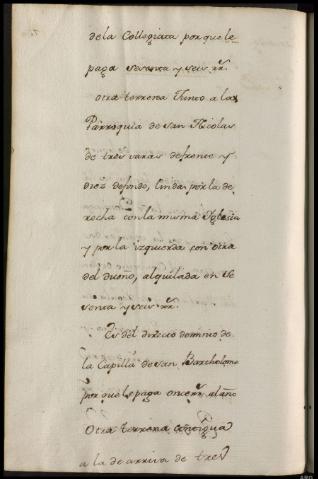 de la Collegiata por que le
paga sesenta y seis rr.
otra terrena Junto a la
Parroquia de san Nicolas
de tres varas de frente y
diez de fondo, linda por la de
recha con la misma Iglesia
y por la izquierda con otra
del dueno, alquilada en se
senta y seis rr.
Es del directo dominio de
la Capilla de san Bartholome
por que le paga once rr. al año
Otra terrena contigua
a la de arriva de tres